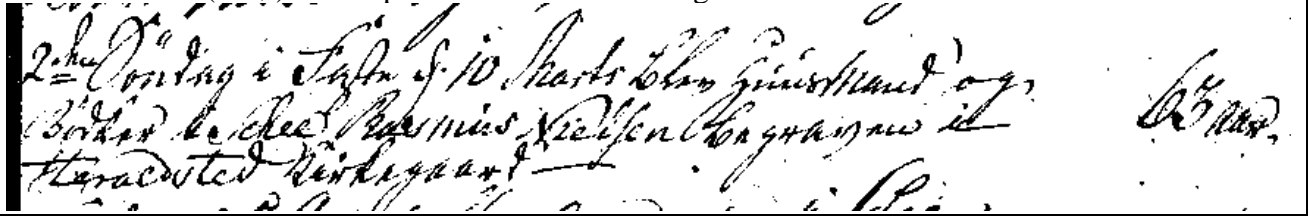 2den Søndag i Faste d. 10 Marts blev Huusmand og
Bødker Rasmus Nielsen begraven i 63 aar.
Haraldsted Kirkegaard